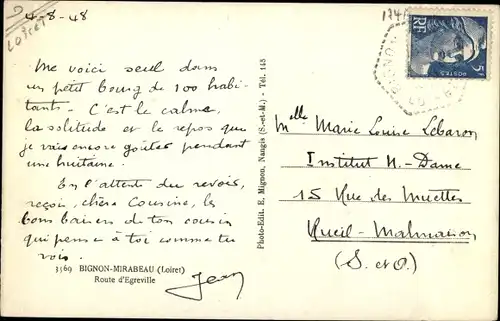 4-8-48
Loiret
Me voici seul dans
un petit bourg de 100 habi-
tants - C'est le calme,
la solitude et le repos que
je vais encore goûter pendant
une huitaine.
En l'attente du revoir,
reçois, chère Cousine, les
bons baisers de ton cousin
qui pense à toi comme tu
vois.
3569 BIGNON-MIRABEAU (Loiret)
Route d'Egreville
Jean
Photo-Edit. E. Mignon, Nangis (S.-et-M.) - Tél. 143
RF
5F
POSTES
Melle Marie Louise Lebaron
Institut N.-Dame
15 Rue des Muettes
Rueil-Malmaison
(S. et O.)